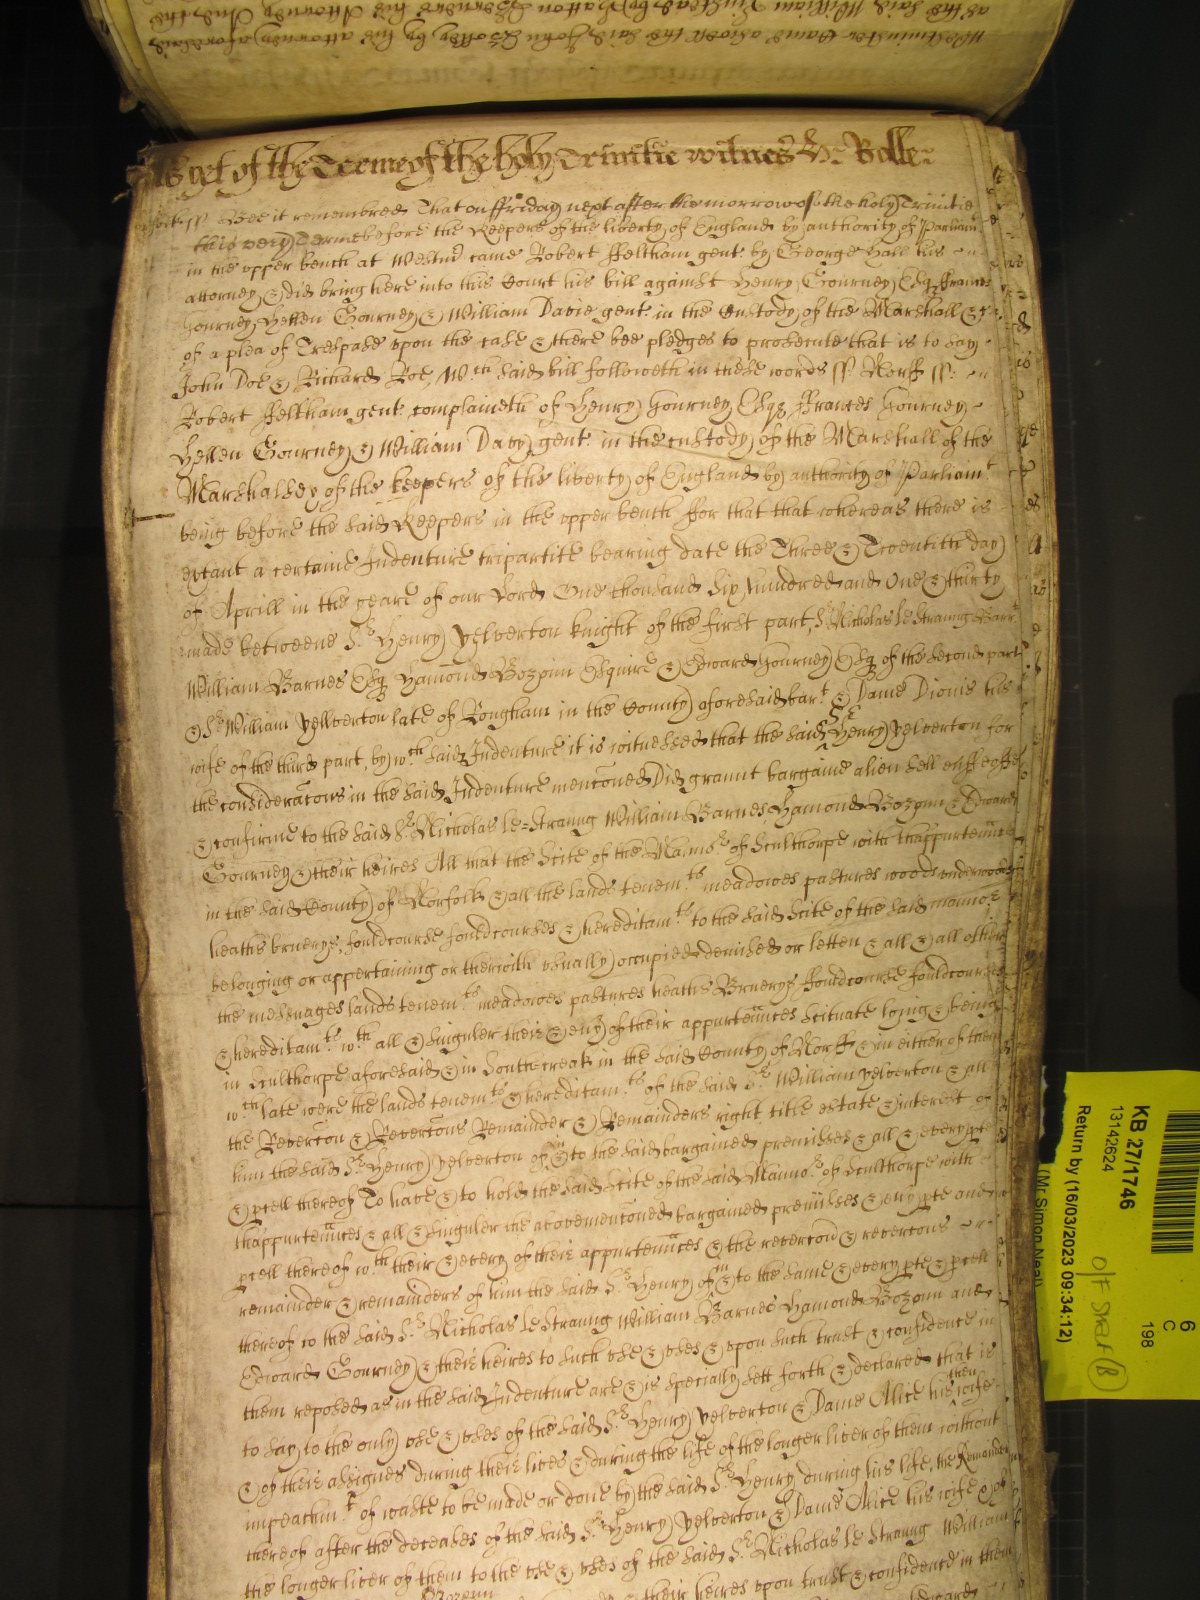 Westminster Came aswell the said John by his attorney aforesaid
as the said William by his Attorney And the
As yet of the Terme of the holy Trinitie witnes H: Rolle
Norff ss Bee it remembred That on ffriday next after the morrow of the holy Trinitie
this very Terme before the Keepers of the liberty of England by authority of Parliamt
in the vpper bench at Westmr came Robert ffeltham gent by George Hall his
attorney & did bring here into this Court his bill against Henry Gourney Esqr ffrances
Gourney Hellen Gourney & William Davie gent in the Custody of the Marshall &c
of a plea of Trespase vpon the case & there bee pledges to prosecute that is to say
John Doe & Richard Roe, Wch said bill followeth in these words ss Norff ss:
Robert ffeltham gent complaineth of Henry Gourney Esqr ffrances Gourney
Hellen Gourney & William Davy gent in the custody of the Marshall of the
Marshalsey of the keepers of the liberty of England by authority of Parliamt
being before the said Keepers in the vpper bench ffor that that whereas there is
extant a certaine Indenture tripartite bearing date the Three & Twentith day
of Aprill in the yeare of our Lord One thousand six hundred and One & thirty
made betweene Sr Henry Yelverton knight of the first part, Sr Nicholas le Straung Barrt
William Barnes Esq Hamond Bozoun Esquire & Edward Gourney Esq of the second part
& Sr William Yelverton late of Rougham in the County aforesaid bart & Dame Dionis his
wife of the third part, by wch said Indenture it is witnessed that the said Sr Henry Yelverton for
the consideracons in the said Indenture menconed Did graunt bargaine alien sell enffeoffe
& confirme to the said Sr Nicholas le-Straung William Barnes Hamond Bozoun & Edward
Gourney & their heires All that the Scite of the Mannor of Sculthorpe with thappurtenncs
in the said County of Norfolk & all the lands tenemts meadowes pastures woods underwoods
heathes brueryes, fouldcourse fouldcourses & hereditamts to the said Scite of the said mannor
belonging or appertaining or therwith vsually occupied demised or letten & all & all other
the messuages lands tenemts meadowes pastures heathes Brueryes ffouldcourse fouldcourses
& hereditamts wth all & singuler their & euy of their appurtenncs scituate lying & being
in Sculthorpe aforesaid & in Southcreak in the said County of Norff & in either of them
wch late were the lands tenemts & hereditamts of the said Sr William Yelverton & all
the Revercon & Revercons Remainder & Remainders right title estate & interest of
him the said Sr Henry Yelverton of in & to the said bargained premisses & all & every pte
& pcell thereof To have & to hold the said Scite of the said Mannor of Sculthorpe with
thappurtenncs & all & singuler the abovemenconed bargained premisses & euy pte and
pcell thereof wth their & every of their appurtenncs & the revercon & revercons
remainder & remainders of him the said Sr Henry of in & to the same & every pte & pcell
thereof to the said Sr Nicholas le Straung William Barnes Hamond Bozoun and
Edward Gourney & their heires to such vse & vses & vpon such trust & confidence in
them reposed as in the said Indenture are & is specially sett forth & declared that is
to say to the only vse & vses of the said Sr Henry Yelverton & Dame Alice his then wife
& of their assignes during their lives & during the life of the longer liver of them without
impeachmt of waste to be made or done by the said Sr Henry during his life, the Remainder
thereof after the decease of the said Sr Henry Yelverton & Dame Alice his wife & of
the longer liver of them to the vse & vses of the said Sr Nicholas le Straung William
Bozoun & their heires vpon trust & confidence in them
KB 27/1746
13142624
Return by (16/03/2023 09:34:12)
(Mr Simon Neal)
6
C
198